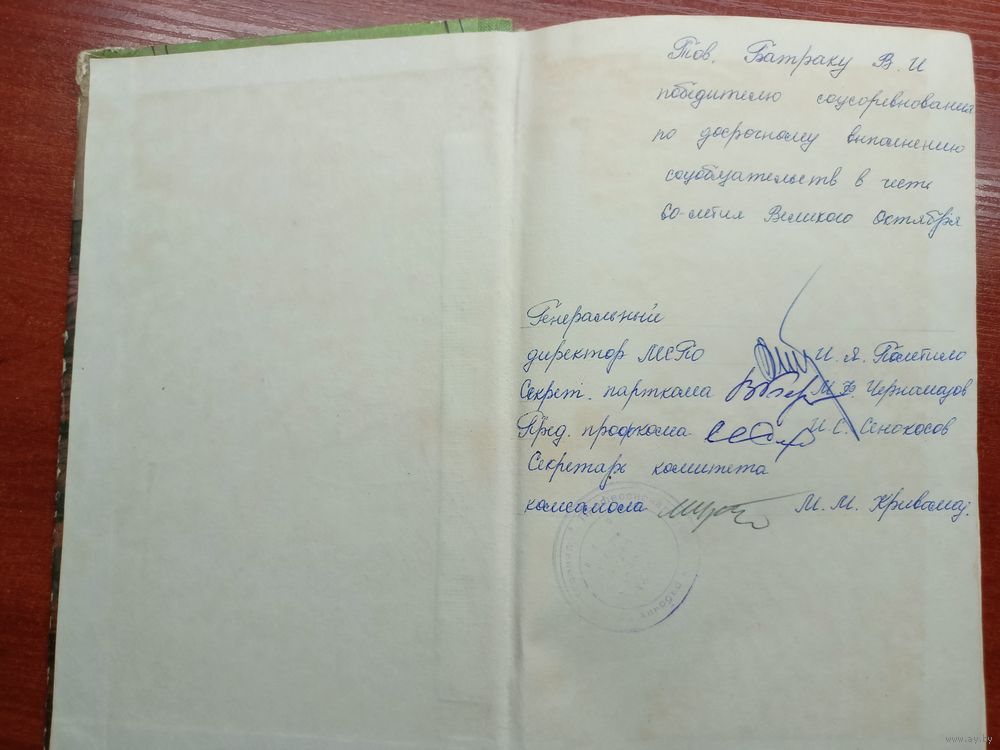 Тов. Батраку В. И
победителю соцсоревнования
по досрочному выполнению
соцобязательств в честь
60-летия Великого Октября
Генеральный
директор МСПО И. Я. Полетило
Секрет. парткома М. Ф. Черномазов
Пред. профкома И. С. Сенокосов
Секретарь комитета
комсомола М. М.
рабочих
www.ay.by